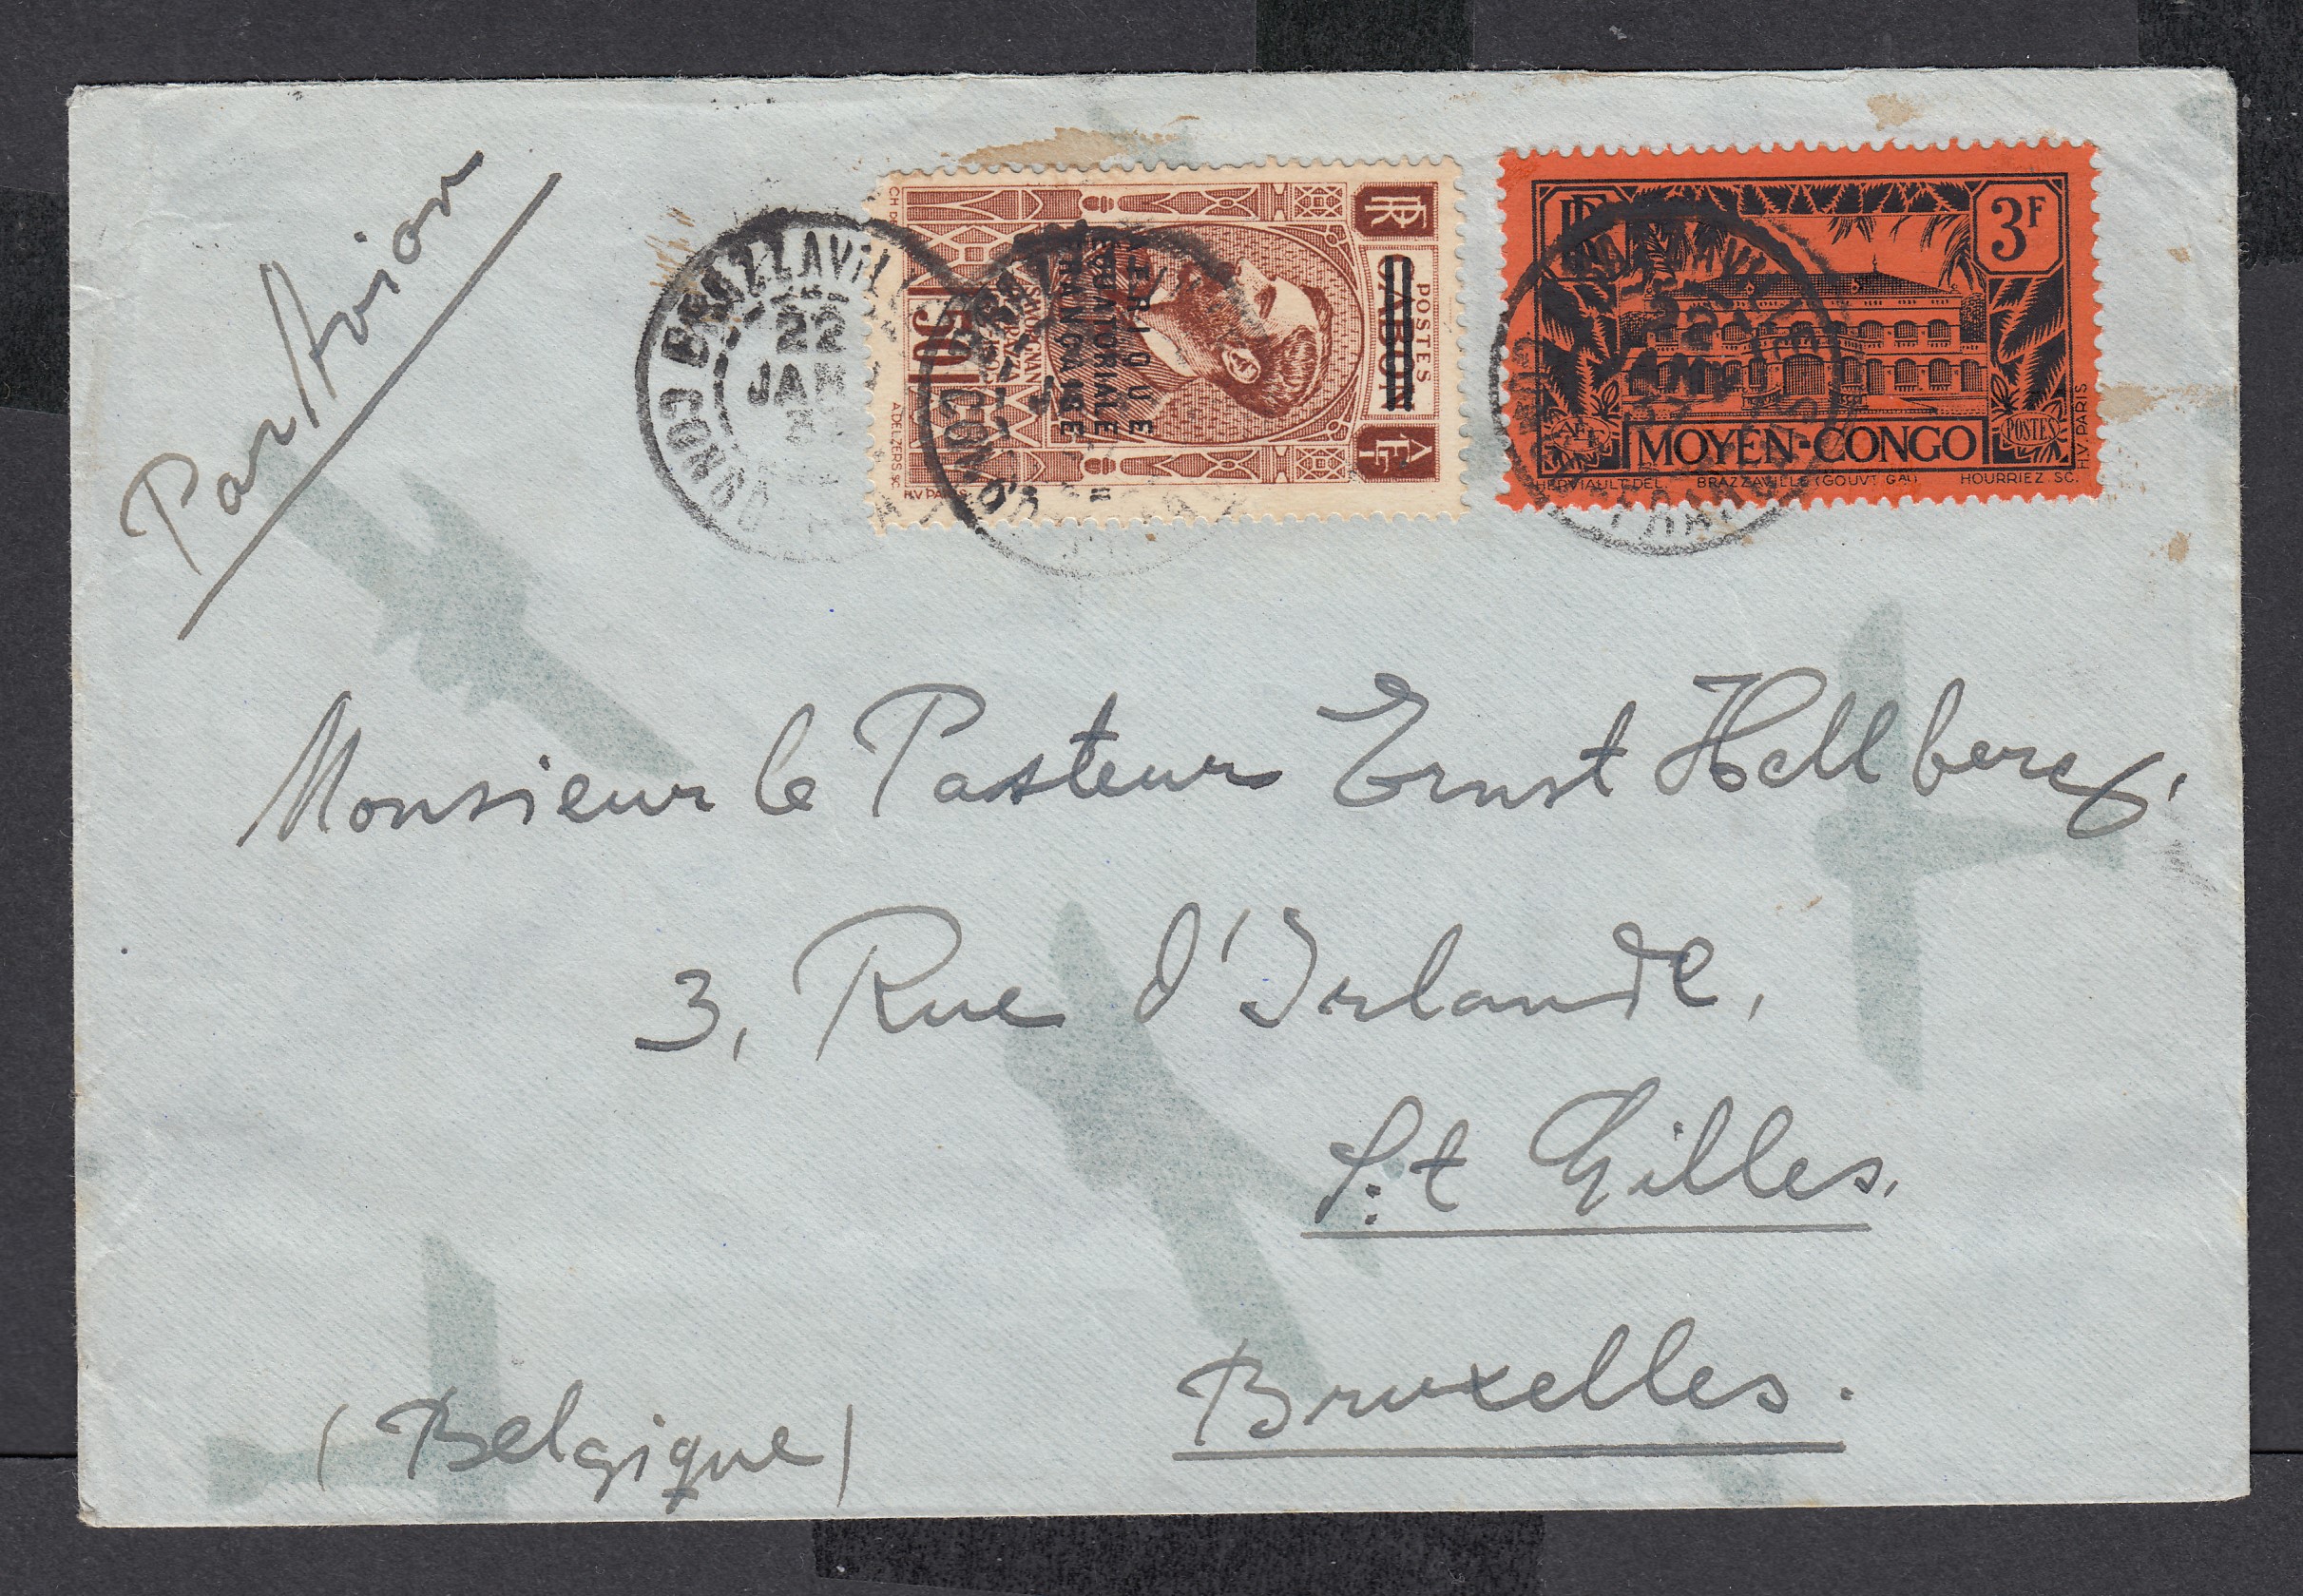 Par Avion
BRAZZAVILLE
22
JAN
CONGO
RF
POSTES
GABON
AFRIQUE
EQUATORIALE
FRANÇAISE
50
AEF
A. DELZERS SC.
H.V. PARIS
RF
3F
AEF
MOYEN-CONGO
POSTES
HERVIAULT DEL. BRAZZAVILLE (GOUVT GAL) HOURRIEZ SC.
H.V. PARIS
Monsieur le Pasteur Ernst Hellberg,
3, Rue d'Irlande,
S:t Gilles,
Bruxelles.
(Belgique)